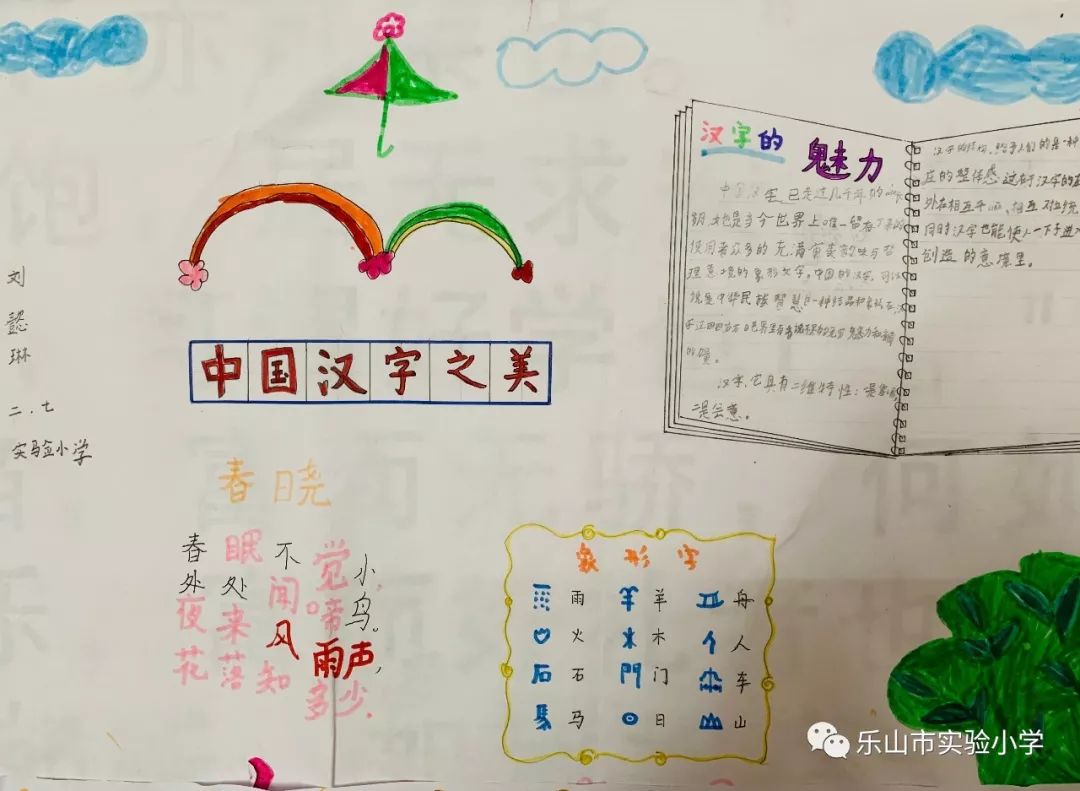 刘
懿
琳
二.七
实验小学
中国汉字之美
汉字的 魅力
中国汉 已走过几千年的
明,她是当今世界上唯一留存
使用者众多的充满审美意味与哲
理意境的象形文字。中国的汉字,可以
说是中华民族智慧 一种结晶和象征
世界 魅力和
的
汉字,它具有二维特性:是象
二是会意。
汉字的结构,给予人们的是一种
的整体感 这 汉字的
外在相互 相互对应统
同时汉字也能使人一下子进
创造的意境里。
春晓
春眠不觉小,
处处闻啼鸟。
夜来风雨声,
花落知多少.
象形字
雨 羊 舟
火 木 人
石 门 车
马 日 山
乐山市实验小学